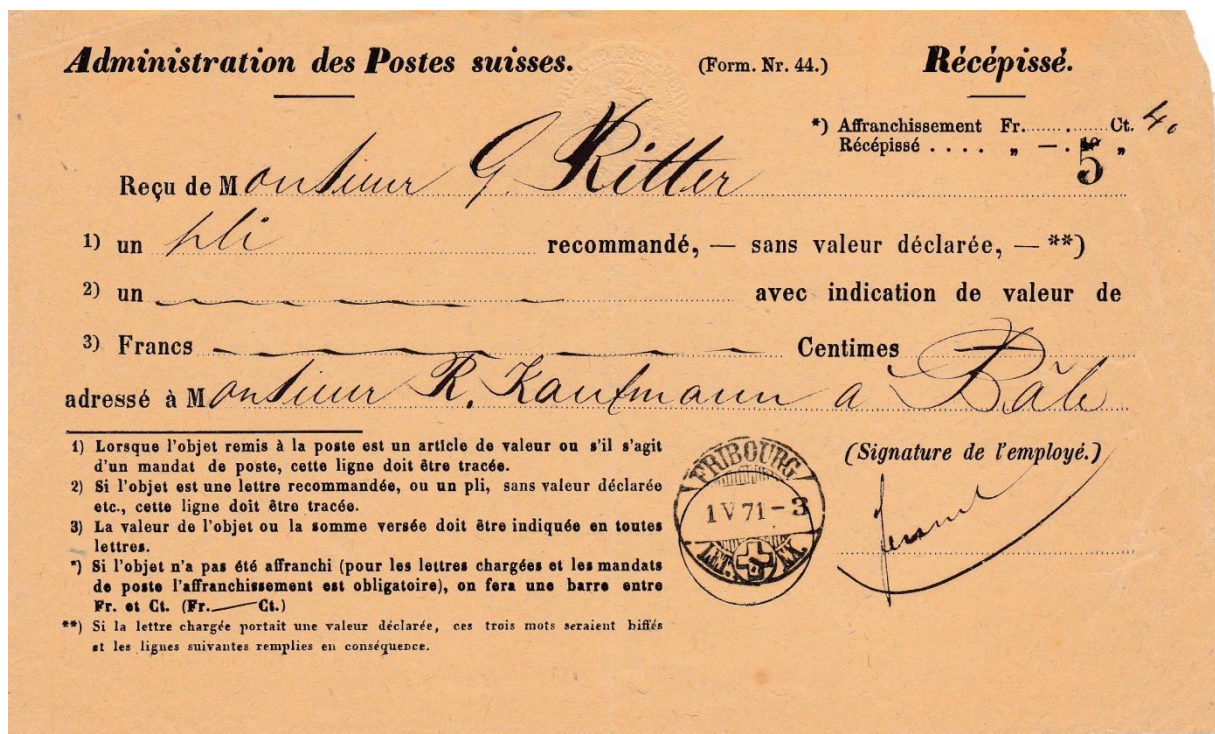 Administration des Postes suisses. (Form. Nr. 44.) Récépissé.
*) Affranchissement Fr. . Ct. 40
Récépissé . . . . „ — . 5 „
Reçu de Monsieur G. Ritter
1) un pli recommandé, — sans valeur déclarée, — **)
2) un avec indication de valeur de
3) Francs Centimes
adressé à Monsieur R. Kaufmann a Bâle
1) Lorsque l'objet remis à la poste est un article de valeur ou s'il s'agit
d'un mandat de poste, cette ligne doit être tracée.
2) Si l'objet est une lettre recommandée, ou un pli, sans valeur déclarée
etc., cette ligne doit être tracée.
3) La valeur de l'objet ou la somme versée doit être indiquée en toutes
lettres.
*) Si l'objet n'a pas été affranchi (pour les lettres chargées et les mandats
de poste l'affranchissement est obligatoire), on fera une barre entre
Fr. et Ct. (Fr.—Ct.)
**) Si la lettre chargée portait une valeur déclarée, ces trois mots seraient biffés
et les lignes suivantes remplies en conséquence.
FRIBOURG
1 V 71 - 3
LET. EX.
(Signature de l'employé.)